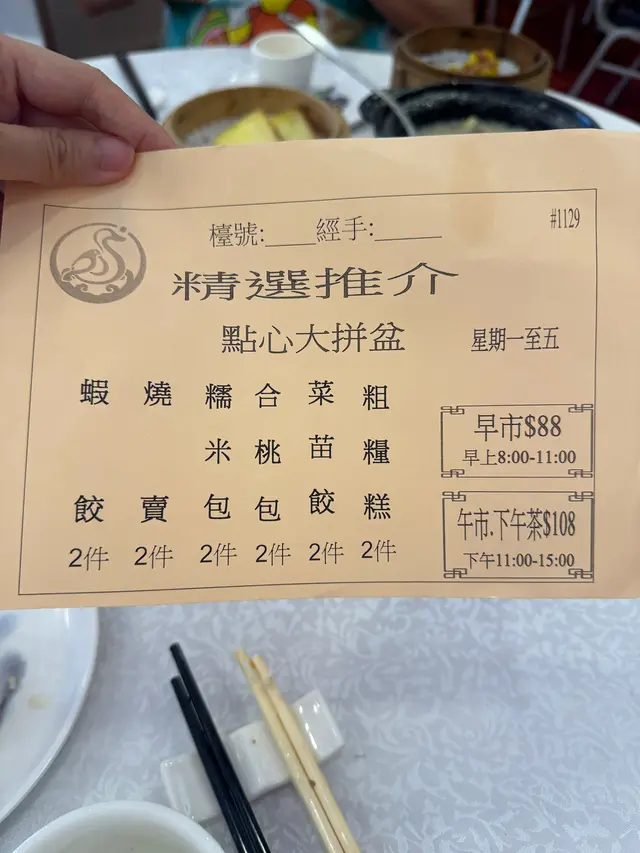 檯號:____經手:_____ #1129
精選推介
點心大拼盆 星期一至五
蝦餃 2件
燒賣 2件
糯米包 2件
合桃包 2件
菜苗餃 2件
粗糧糕 2件
早市$88
早上8:00-11:00
午市.下午茶$108
下午11:00-15:00